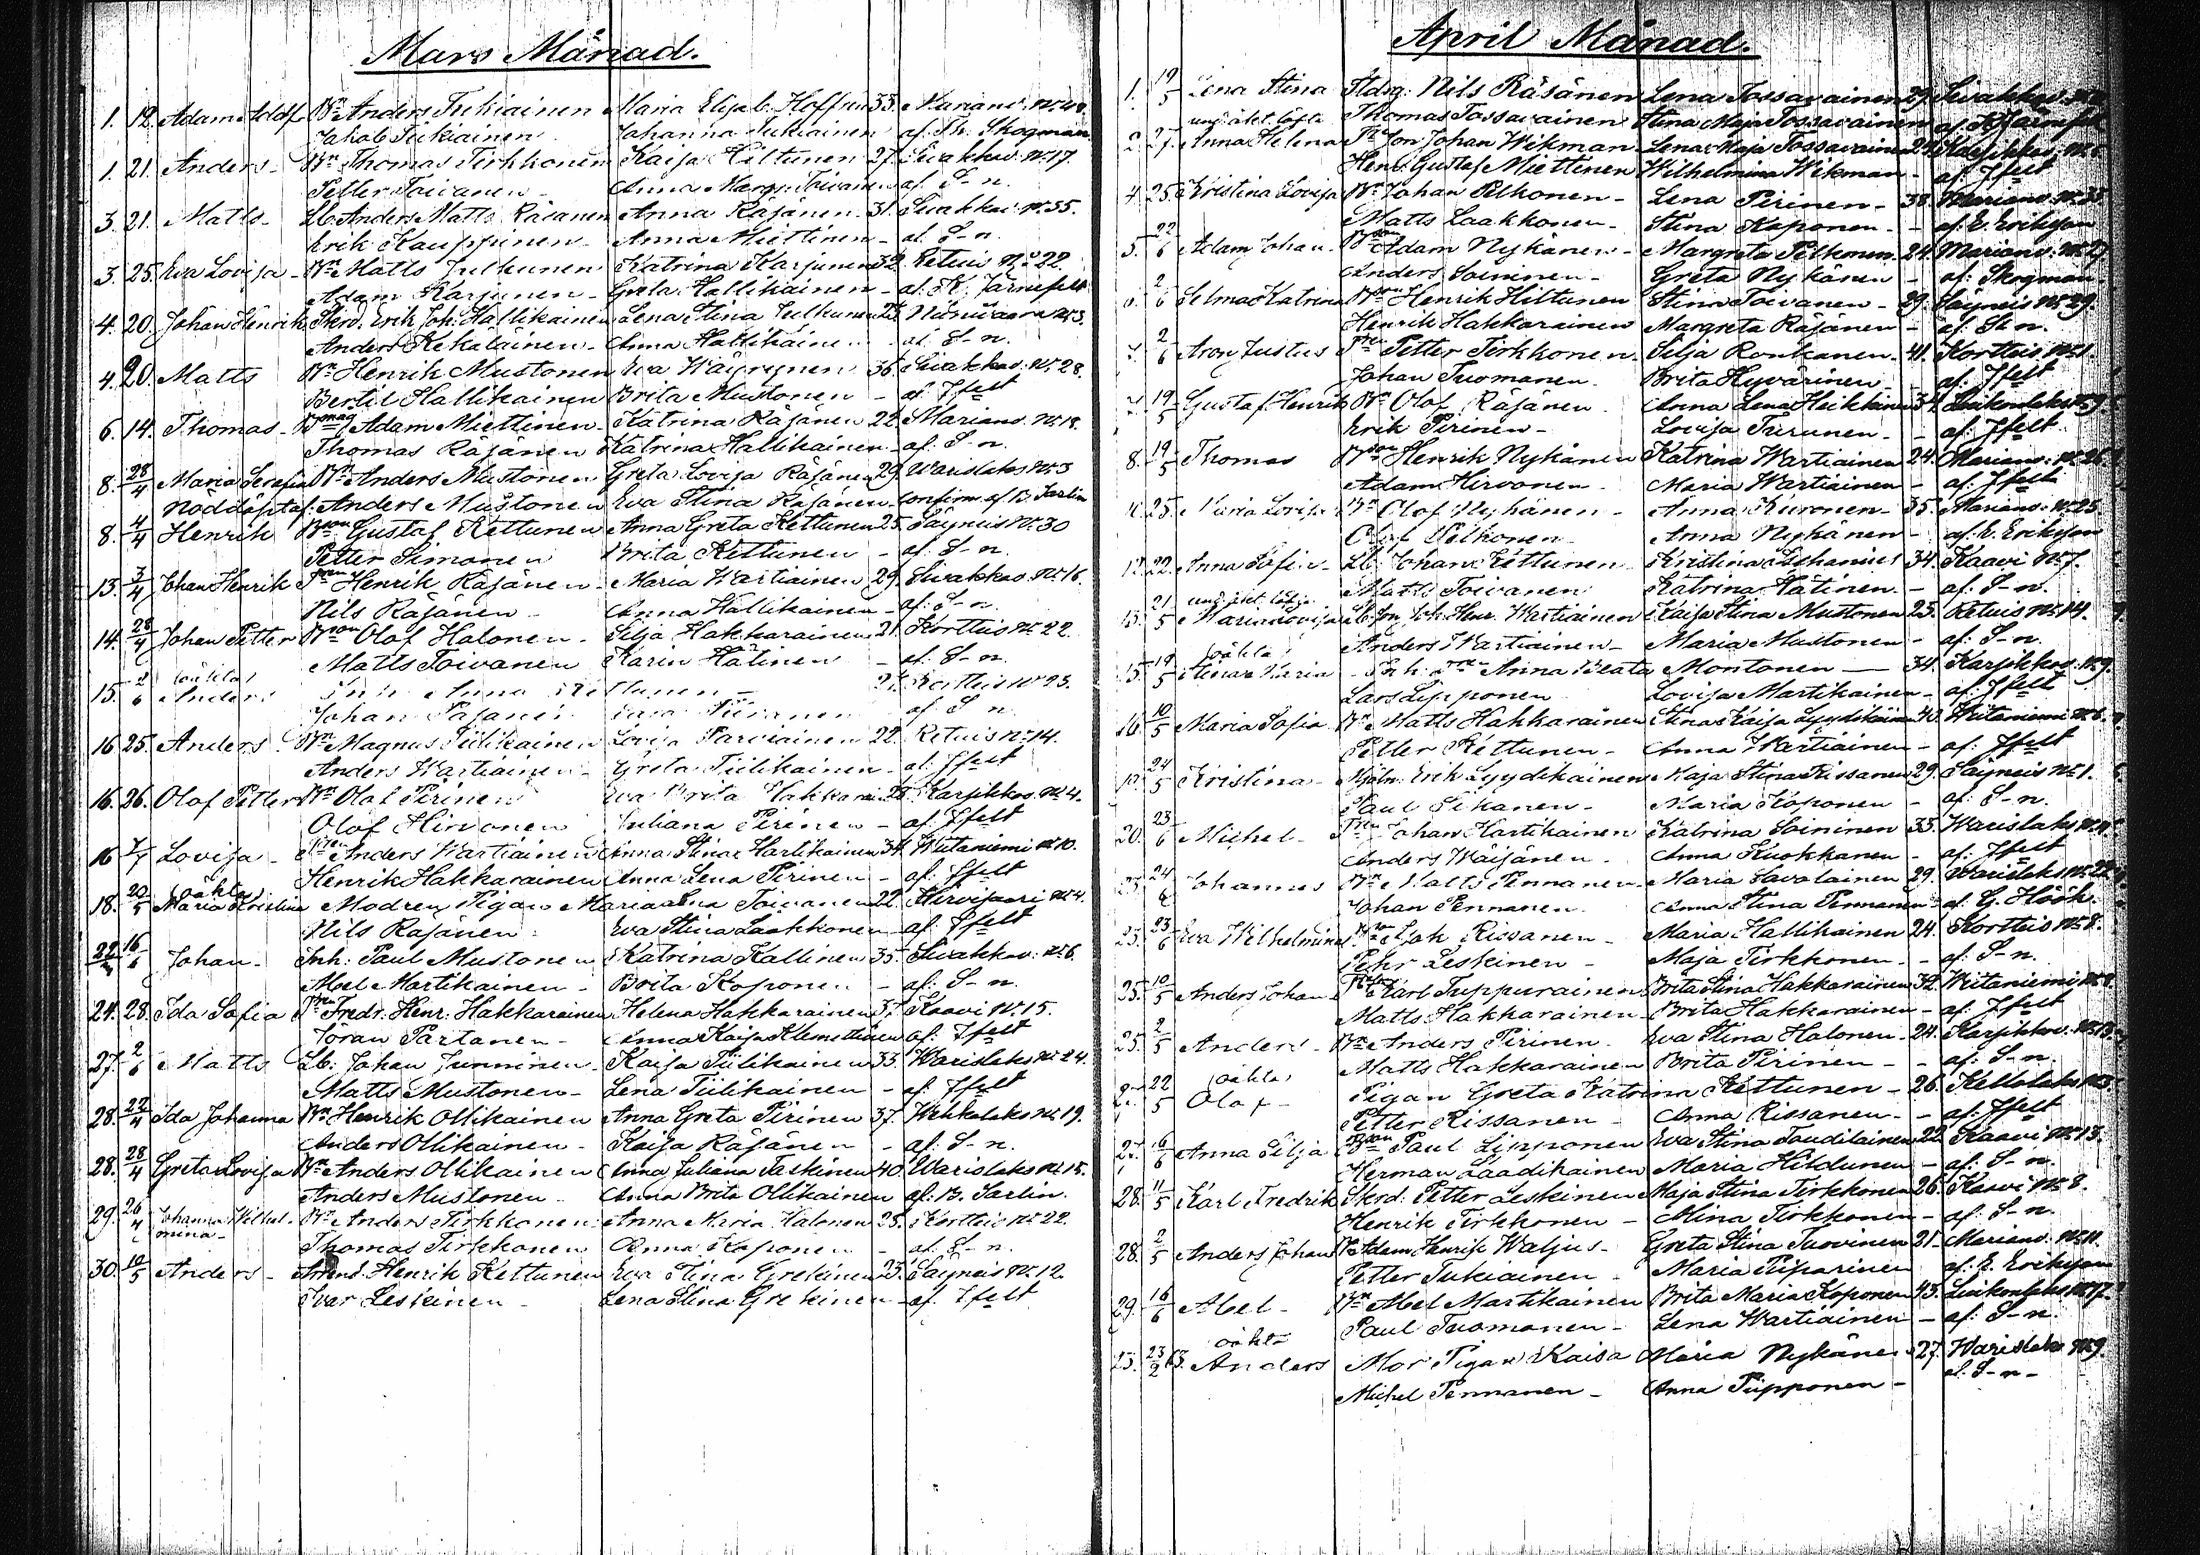 Mars Månad.
1. 12. Adam Adolf Bn Anders Tukiainen Maria Elisab. Hoffrén 33. Marianv. No 40.
Jakob Tukiainen Johanna Tukiainen af Th. Skogman
1. 21. Anders - Bn Thomas Tirkkonen Kaisa Hiltunen 27. Sivakkav. No 17.
Petter Toivanen - Anna Margr. Toivanen af S-n.
3. 21. Matts - Lb. Anders Matts Räsänen Anna Räsänen 31. Sivakkav. No 35.
Erik Kauppinen - Anna Miettinen - af S-n.
3. 25. Eva Lovisa - Bn Matts Julkunen Katrina Karjunen 32. Retuis No 22.
Adam Karjunen - Greta Hallikainen - af K. Järnefelt
4. 20. Johan Henrik Skrd. Erik Joh. Hallikainen Lena Stina Julkunen 23. Niinivaara No 3.
Anders Kekäläinen - Anna Hallikainen - af S-n.
4. 20. Matts Bn Henrik Mustonen Eva Wäyrynen 36. Sivakkav. No 28.
Bertil Hallikainen Brita Mustonen - af Jfelt
6. 14. Thomas - Bmåg Adam Miettinen - Katrina Räsänen 22. Marianv. No 18.
Thomas Räsänen Katrina Hallikainen - af S-n.
8. 28/4 Maria Serafia Bn Anders Mustonen Greta Lovisa Räsänen 29. Warislaks No 3
Nöddöpt af Anders Mustonen Eva Stina Räsänen confirm. af B. Sarlin
8. 4/4 Henrik Bson Gustaf Kettunen Anna Greta Kettunen 25. Säyneis No 30
Petter Simonen Brita Kettunen - af S-n.
13. 3/4 Johan Henrik Tren Henrik Räsänen - Maria Wartiainen 29. Sivakkav. No 16.
Nils Räsänen - Anna Hallikainen - af S-n.
14. 28/4 Johan Petter Bson Olof Halonen - Silja Hakkarainen 21. Kortteis No 22.
Matts Toivanen Karin Hätinen - af S-n.
15. 2/6 (oäkta) Anders Inh. Anna Kettunen - Kortteis No 23.
Johan Räsänen af S-n.
16. 25. Anders Bn Magnus Tiilikainen Lovisa Parviainen 22. Retuis No 14.
Anders Wartiainen - Greta Tiilikainen - af Jfelt
16. 26. Olof Petter Bn Olof Pirinen Eva Brita Hakkara. 25. Karsikkov. No 4.
Olof Hirvonen Juliana Pirinen - af Jfelt
16. Lovisa - Tren Anders Wartiainen Anna Stina Hartikainen 34. Witaniemi No 10.
Henrik Hakkarainen Anna Lena Pirinen - af Jfelt
18. 20/5 (oäkta) Maria Kristina Modren Pigan Maria Lena Toivanen 22. Hirvisaari No 4.
Nils Räsänen - Eva Stina Laakkonen - af Jfelt
22. 16/6 Johan - Inh. Paul Mustonen Katrina Kallinen 35. Sivakkav. No 6.
Abel Martikainen - Brita Koponen - af S-n.
24. 28. Ida Sofia Tren Fredr. Henr. Hakkarainen Helena Hakkarainen 37. Kaavi No 15.
Jöran Partanen - Anna Kaisa Klemettinen af Jfelt
27. 2/6 Matts Lb. Johan Junninen - Kaisa Tiilikainen 33. Warislaks No 24.
Matts Mustonen - Lena Tiilikainen - af Jfelt
28. 22/4 Ida Johanna Bn Henrik Ollikainen Anna Greta Pirinen 37. Wehkalaks No 19.
Anders Ollikainen - Kaisa Räsänen - af S-n.
28. 28/4 Greta Lovisa Bn Anders Ollikainen Anna Juliana Taskinen 40. Warislaks No 15.
Anders Mustonen - Anna Brita Ollikainen af B. Sarlin.
29. 26/4 Johanna Wilhelmina - Bn Anders Tirkkonen Anna Maria Halonen 25. Kortteis No 22.
Thomas Tirkkonen Anna Koponen - af S-n.
30. 10/5 Anders - Arrend. Henrik Kettunen Eva Stina Grekinen 23. Säyneis No 12.
Ivar Leskinen - Lena Stina Grekinen - af Jfelt
April Månad.
1. 19/5 Lena Stina Stdrg. Nils Räsänen Lena Tossavainen 29. Sivakkav.
Thomas Tossavainen Stina Maja Tossavainen af K. Järnefelt
2. 27. und. äkt. löfte Anna Helena Johan Wikman - Lena Maja Tossavainen 24. Karsikkov. No 6.
Henr. Gustaf Miettinen Wilhelmina Wikman - af Jfelt
4. 25. Kristina Lovisa Bn Johan Pelkonen - Lena Pirinen - 38. Marianv. No 35.
Matts Laakkonen - Stina Koponen - af E. Erikson
5. 22/6 Adam Johan - Bson Adam Nykänen - Margreta Pelkonen 24. Marianv. No 27.
Anders Soininen - Greta Nykänen - af Skogman
6. 2/6 Selma Katrina Bson Henrik Hiltunen Stina Toivanen - 29. Säyneis No 29.
Henrik Hakkarainen Margreta Räsänen - af S-n.
7. 2/6 Aron Justus Tren Petter Tirkkonen - Silja Ronkanen 41. Kortteis No 1.
Johan Tuomanen - Brita Hyvärinen - af Jfelt
7. 19/5 Gustaf Henrik Bn Olof Räsänen - Anna Lena Heikkinen 34. Luikonlaks No 9.
Erik Pirinen - Lovisa Turunen - af Jfelt
8. 19/5 Thomas Bson Henrik Nykänen Katrina Wartiainen 24. Marianv. No 26.
Adam Hirvonen - Maria Wartiainen - af Jfelt
11. 25. Maria Lovisa Bn Olof Nykänen - Anna Kuronen - 35. Marianv. No 25.
Olof Pelkonen - Anna Nykänen - af E. Erikson
12. 22. Anna Sofia - Lb. Johan Kettunen - Kristina Eschanius 34. Kaavi No 7.
Matts Toivanen Katrina Hätinen - af S-n.
13. 21/5 und. äkt. löfte Maria Lovisa Joh. Henr. Wartiainen Kaisa Stina Mustonen 23. Retuis No 14.
Anders Wartiainen - Maria Mustonen - af S-n.
15. 19/5 (oäkta) Stina Maria - Inh. Anna Beata Montonen - 34. Karsikkov. No 9.
Lars Lipponen Lovisa Martikainen - af Jfelt
16. 10/5 Maria Sofia Bn Matts Hakkarainen Stina Kaisa Lyydikäinen 40. Witaniemi No 6.
Petter Kettunen - Anna Wartiainen - af Jfelt
24/5 Kristina - Mjöln. Erik Lyydikäinen Maja Stina Rissanen 29. Säyneis No 1.
Paul Sikanen - Maria Koponen - af S-n.
20. 23/6 Michel - Tren Johan Hartikainen Katrina Soininen 33. Warislaks No 4.
Anders Wäisänen - Anna Kuokkanen - af Jfelt
23. 24/6 Johannes Bn Matts Pennanen - Maria Savolainen 29. Warislaks No 22.
Johan Pennanen - Anna Stina Pennanen - af G. Höök.
23. 23/6 Eva Wilhelmina Rissanen - Maria Hallikainen 24. Kortteis No 8.
Pehr Leskinen - Maja Tirkkonen - af S-n.
25. 10/5 Anders Johan Karl Tuppurainen Brita Stina Hakkarainen 32. Witaniemi No 8.
Matts Hakkarainen Brita Hakkarainen - af Jfelt
25. 2/5 Anders - Bn Anders Pirinen - Eva Stina Halonen - 24. Karsikkov. No 13.
Matts Hakkarainen Brita Pirinen - af S-n.
22/5 (oäkta) Olof - Pigan Greta Katrina Kettunen - 26. Kellolaks No 3.
Petter Rissanen - Anna Rissanen - af Jfelt
27. 16/6 Anna Silja Bson Paul Lipponen Eva Stina Taudilainen 22. Kaavi No 13.
Herman Laadikainen Maria Hildunen - af S-n.
28. 11/5 Karl Fredrik Skrd. Petter Leskinen Maja Stina Tirkkonen 26. Kaavi No 8.
Henrik Tirkkonen - Mina Tirkkonen - af S-n.
28. 2/5 Anders Johan Bn Adam Henrik Waljus - Greta Stina Tuovinen 21. Marianv. No 11.
Petter Tukiainen - Maria Piiparinen af E. Erikson
29. 16/6 Abel - Bn Abel Martikainen Brita Maria Koponen 43. Luikonlaks No 17.
Paul Tuomonen - Lena Wartiainen - af S-n.
23. 23/2 63. oäkta Anders Mor Pigan Kaisa Maria Nykänen 27. Warislaks No 9.
Michel Pennanen - Anna Piipponen - af S-n -